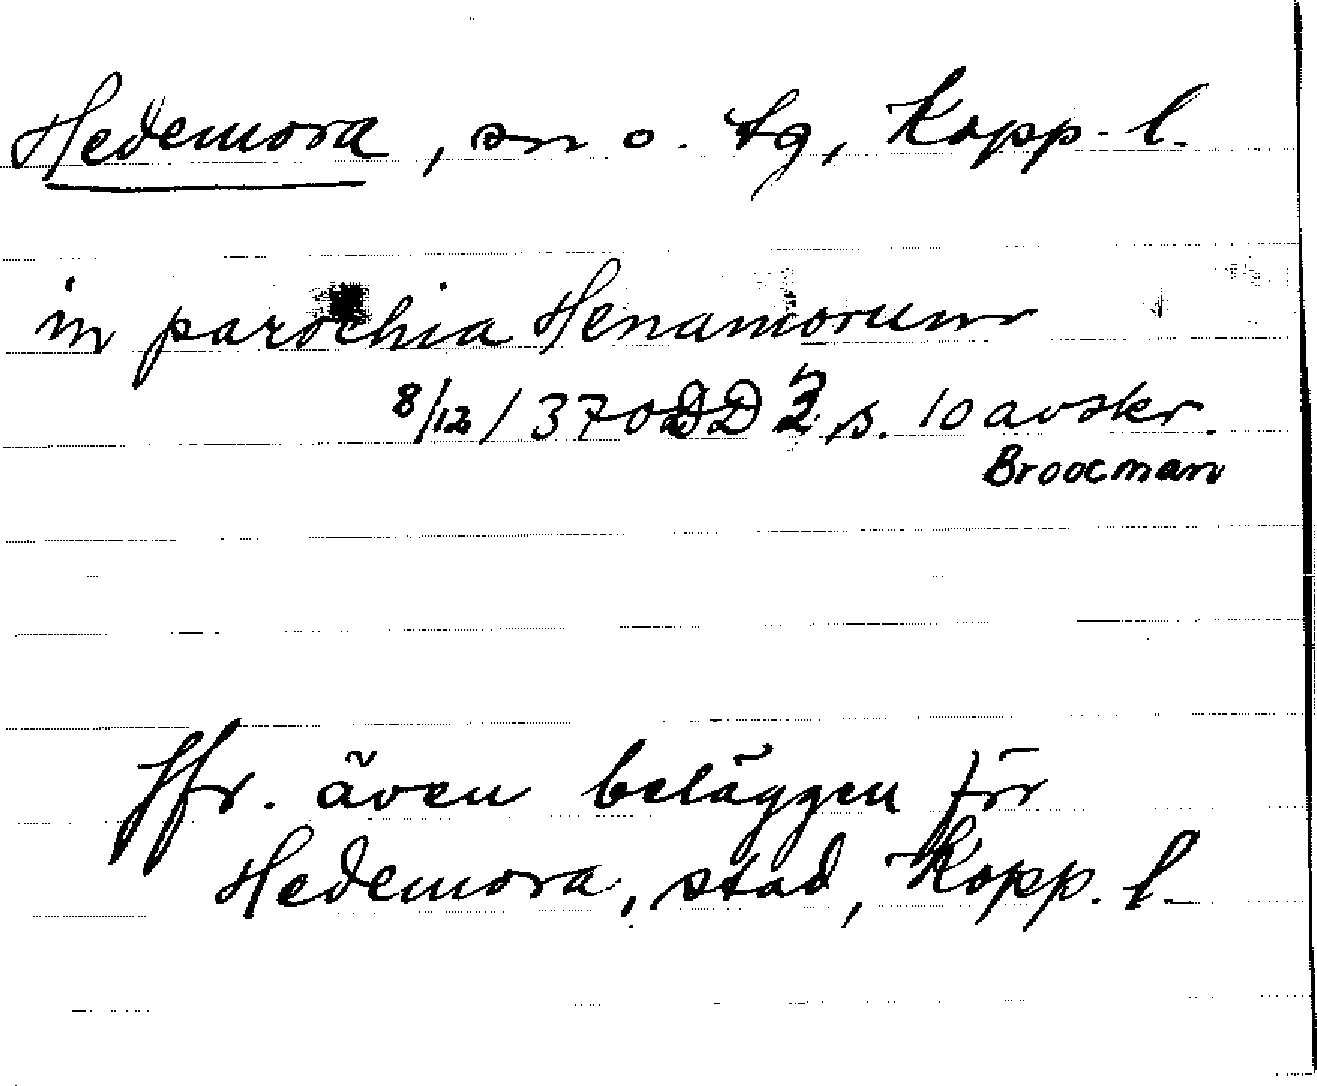 Hedemora, sn o. tg, Kopp. l.
in parochia Henamorum
8/12 1370 DD 3 s. 10 avskr.
Broocman
Jfr. även beläggen för
Hedemora, stad, Kopp. l.